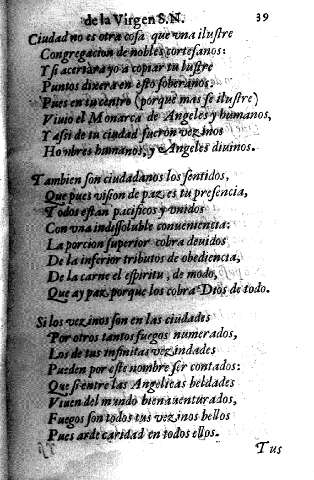 de la Virgen S.N. 39
Ciudad no es otra cosa que vna ilustre
Congregacion de nobles cortesanos:
Y si acertara yo a copiar tu lustre
Puntos dixera en esto soberanos:
Pues en tu centro (porque mas se ilustre)
Viuio el Monarca de Angeles y humanos,
Y assi de tu ciudad fueron vezinos
Hombres humanos, y Angeles diuinos.
Tambien son ciudadanos los sentidos,
Que pues vision de paz es tu presencia,
Todos estan pacificos y vnidos
Con vna indissoluble conueniencia:
La porcion superior cobra deuidos
De la inferior tributos de obediencia,
De la carne el espiritu, de modo,
Que ay paz, porque los cobra Dios de todo.
Si los vezinos son en las ciudades
Por otros tantos fuegos numerados,
Los de tus infinitas vezindades
Pueden por este nombre ser contados:
Que si entre las Angelicas beldades
Viuen del mundo bienauenturados,
Fuegos son todos tus vezinos bellos
Pues arde caridad en todos ellos.
Tus